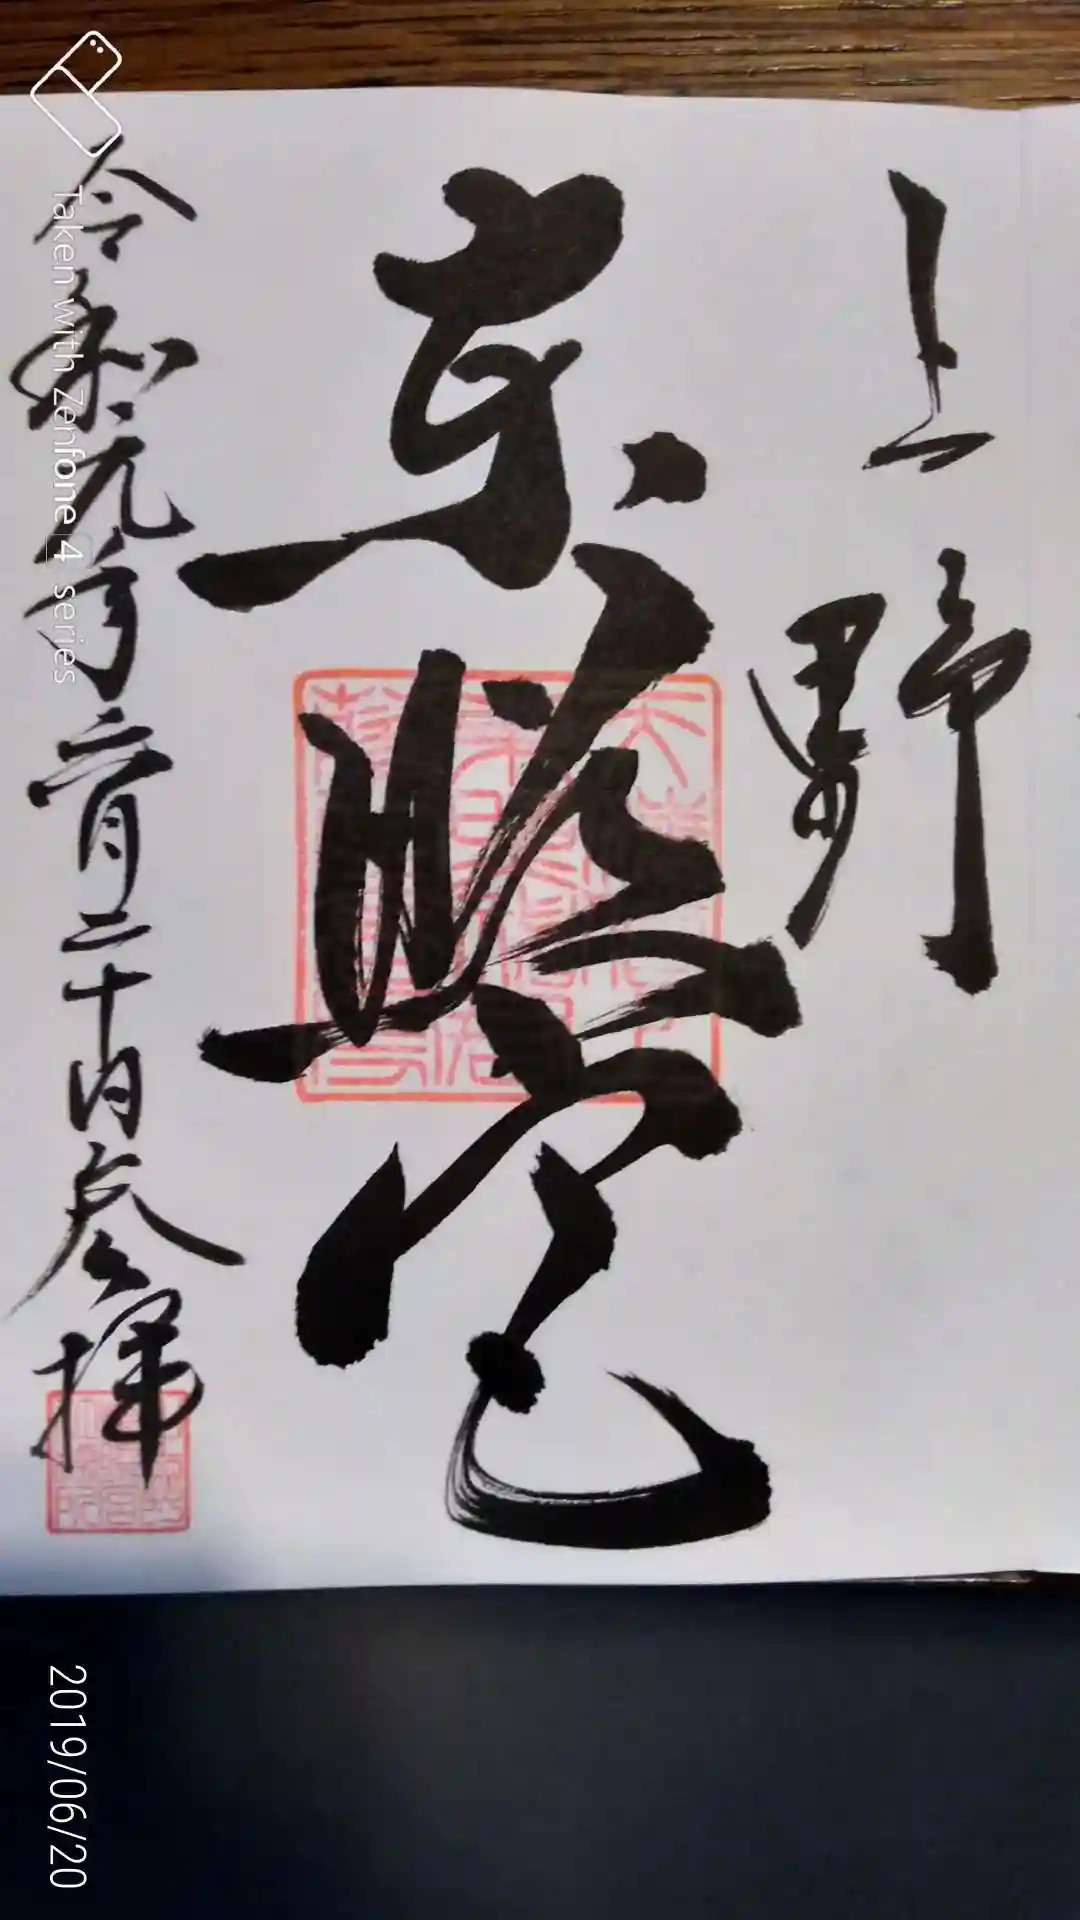 上野
東照宮
令和元年六月二十日参拝
Taken with Zenfone 4 series
2019/06/20